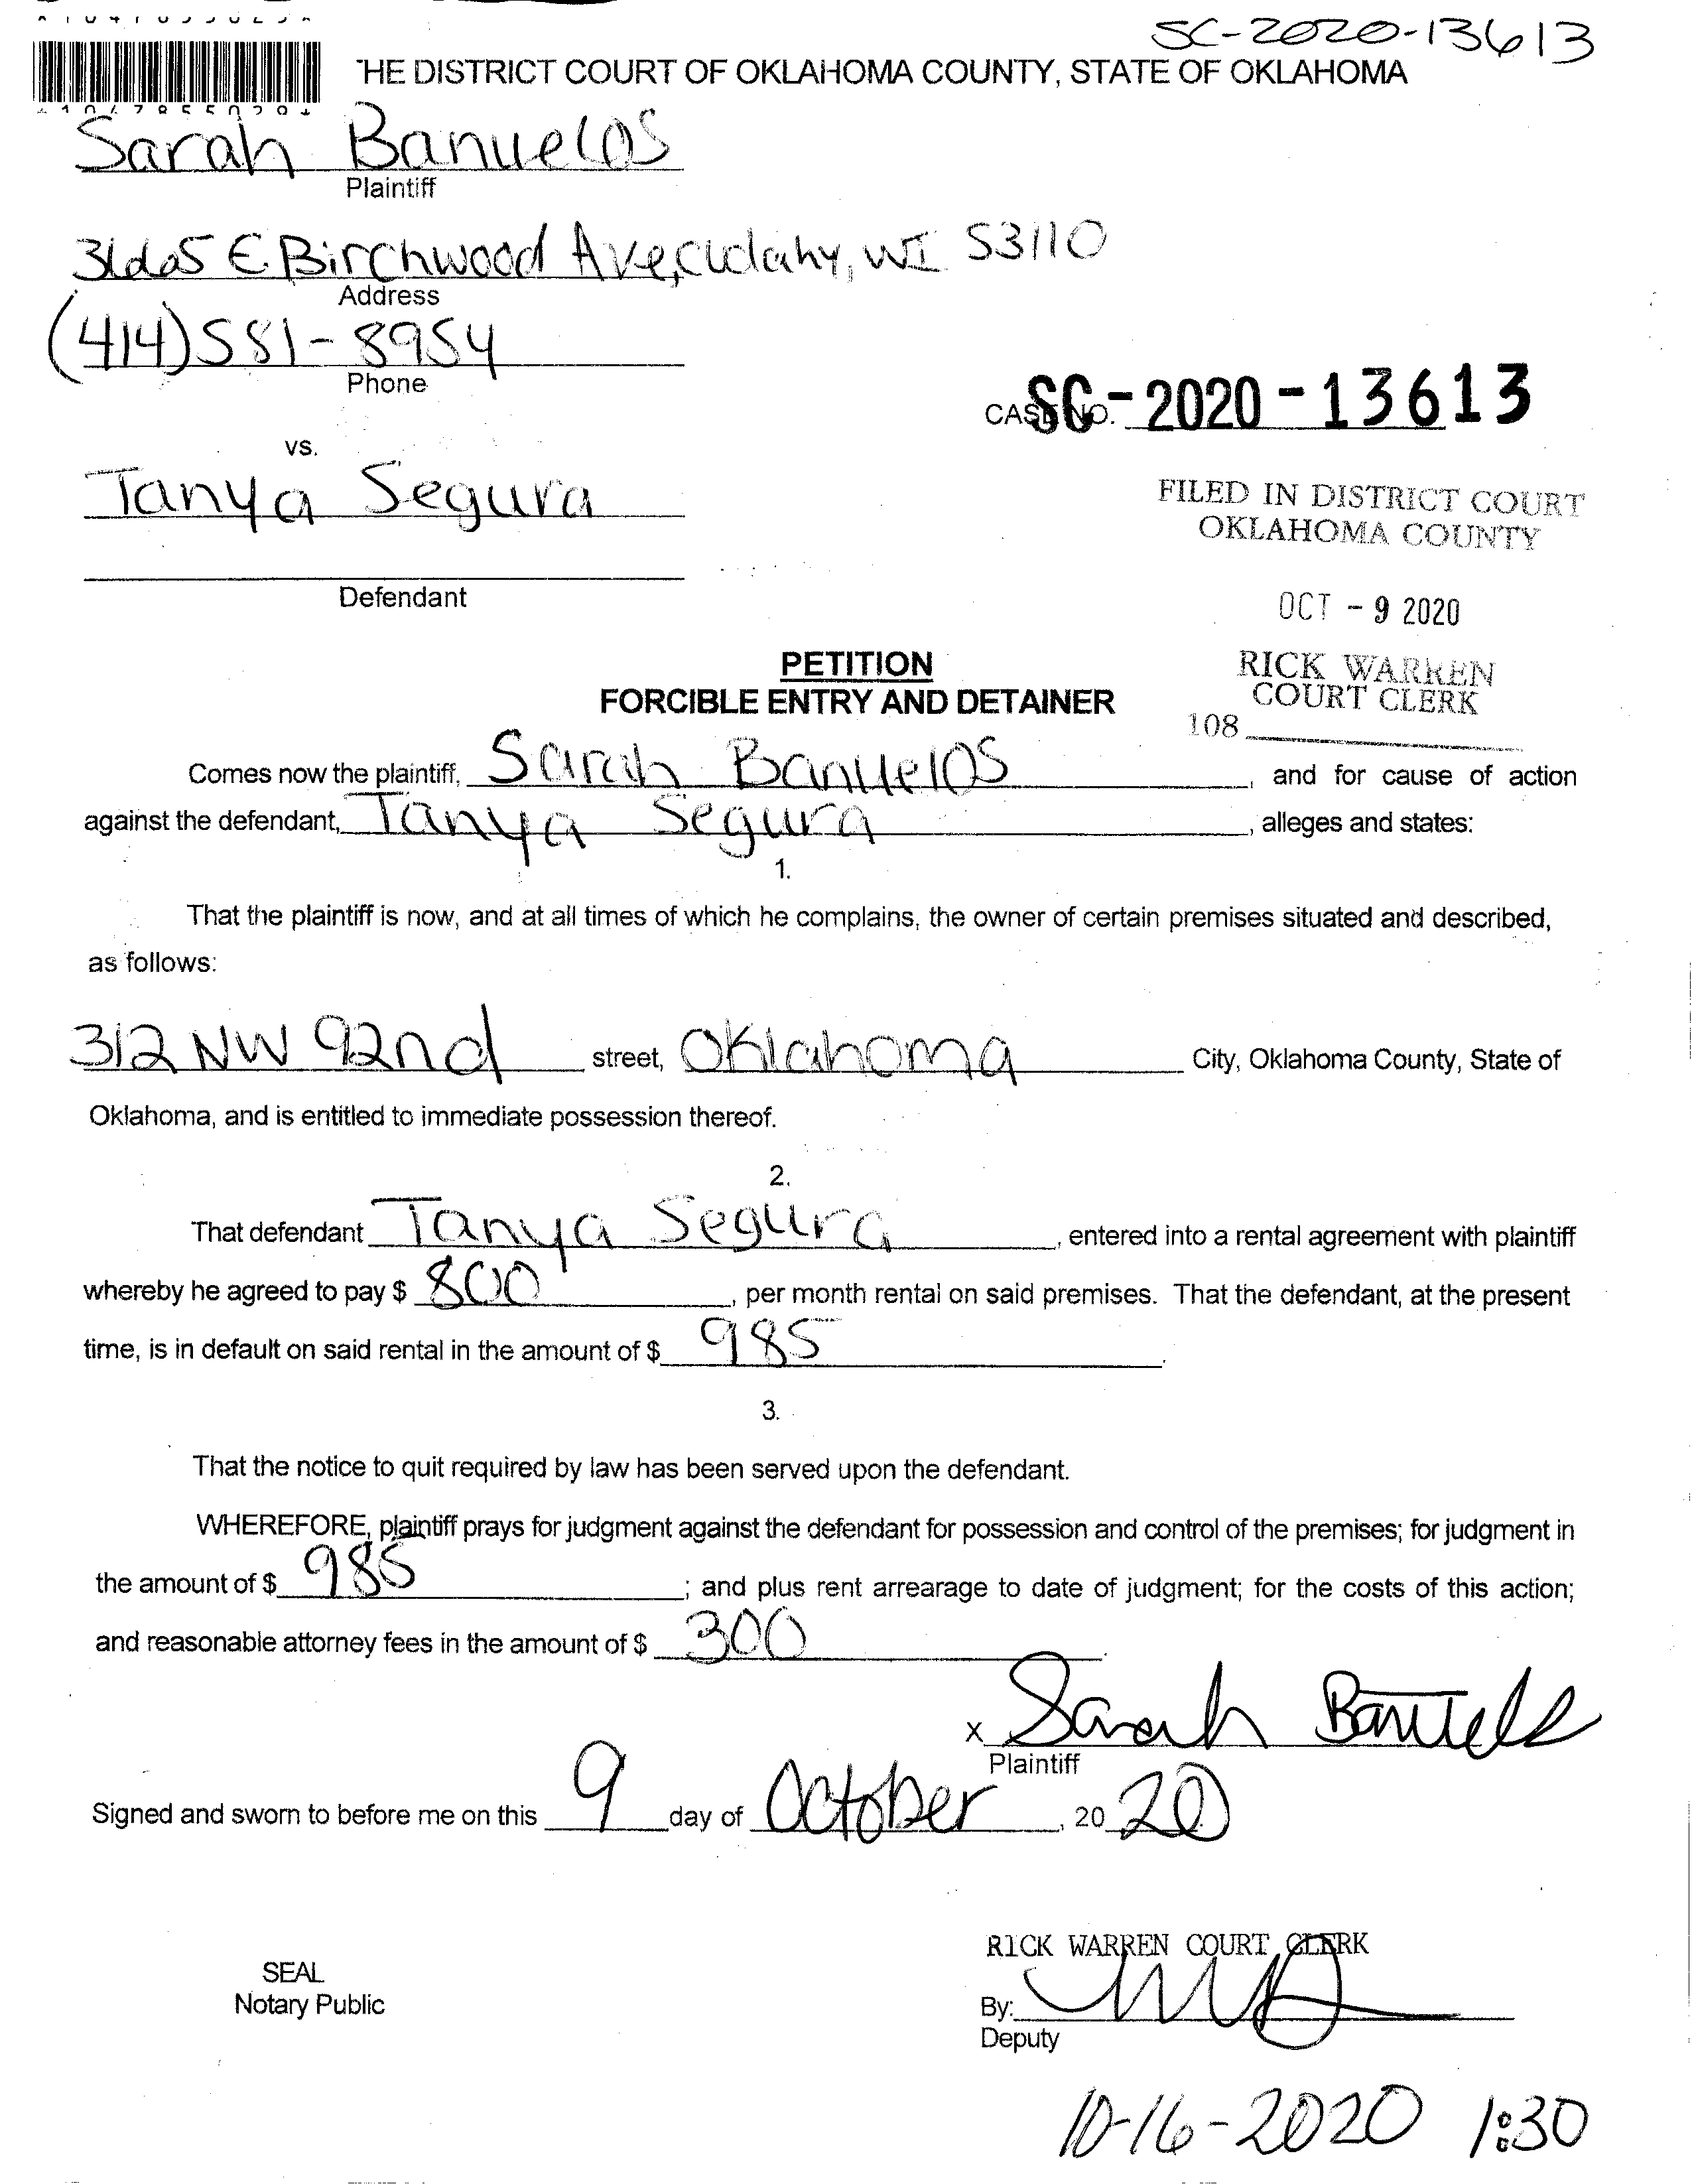 SC-2020-13613
THE DISTRICT COURT OF OKLAHOMA COUNTY, STATE OF OKLAHOMA
Sarah Banuelos
Plaintiff
E. Birchwood Ave, Cudahy, WI 53110
Address
(414) 581-8954
Phone
CASE NO. SC-2020-13613
vs.
Tanya Segura
FILED IN DISTRICT COURT
OKLAHOMA COUNTY
Defendant
OCT - 9 2020
PETITION
FORCIBLE ENTRY AND DETAINER
RICK WARREN
COURT CLERK
108
Comes now the plaintiff, Sarah Banuelos, and for cause of action
against the defendant, Tanya Segura, alleges and states:
1.
That the plaintiff is now, and at all times of which he complains, the owner of certain premises situated and described,
as follows:
312 NW 92nd street, Oklahoma City, Oklahoma County, State of
Oklahoma, and is entitled to immediate possession thereof.
2.
That defendant Tanya Segura, entered into a rental agreement with plaintiff
whereby he agreed to pay $ 800, per month rental on said premises. That the defendant, at the present
time, is in default on said rental in the amount of $ 985.
3.
That the notice to quit required by law has been served upon the defendant.
WHEREFORE, plaintiff prays for judgment against the defendant for possession and control of the premises; for judgment in
the amount of $ 985; and plus rent arrearage to date of judgment; for the costs of this action;
and reasonable attorney fees in the amount of $ 300.
X Sarah Banuelos
Plaintiff
Signed and sworn to before me on this 9 day of October, 20 20
RICK WARREN COURT CLERK
SEAL
Notary Public
By:
Deputy
10-16-2020 1:30